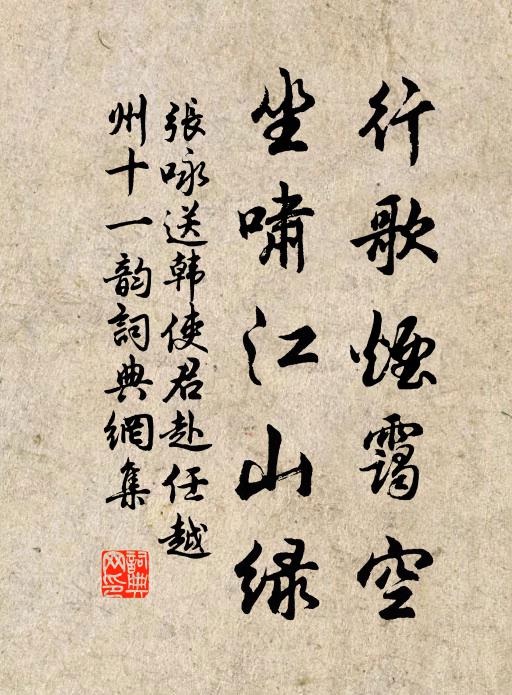 行歌煙靄空
坐嘯江山緑
張咏送韩使君赴任越
州十一韵詞典網集
詞典
网印